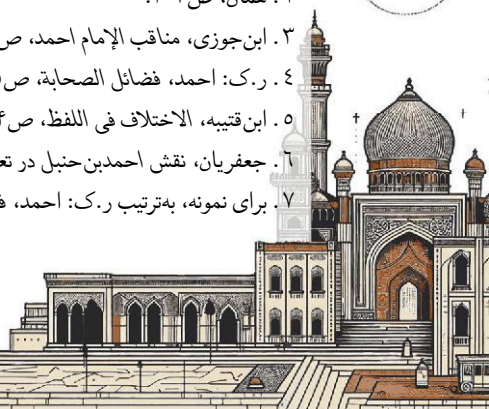 ۳. ابن‌جوزی، مناقب الإمام احمد، ص
٤. ر.ک: احمد، فضائل الصحابة، ص
٥. ابن‌قتیبه، الاختلاف فی اللفظ، ص
٦. جعفریان، نقش احمدبن‌حنبل در
۷. برای نمونه، به‌ترتیب ر.ک: احمد،